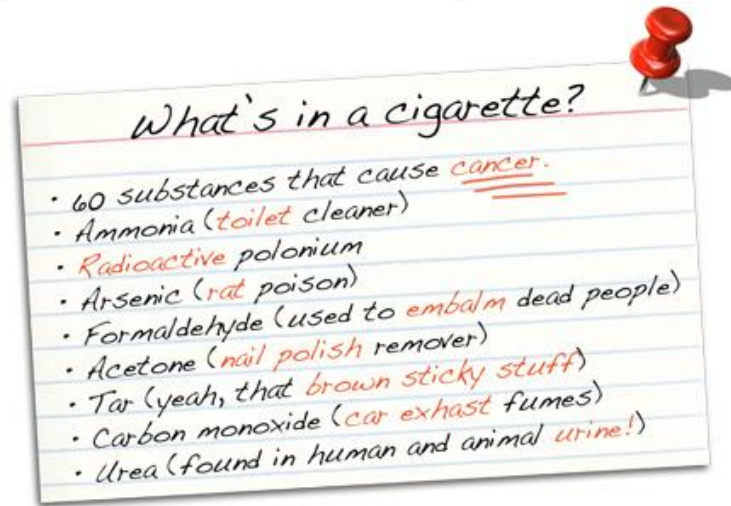 What's in a cigarette?
· 60 substances that cause cancer.
· Ammonia (toilet cleaner)
· Radioactive polonium
· Arsenic (rat poison)
· Formaldehyde (used to embalm dead people)
· Acetone (nail polish remover)
· Tar (yeah, that brown sticky stuff)
· Carbon monoxide (car exhast fumes)
· Urea (found in human and animal urine!)